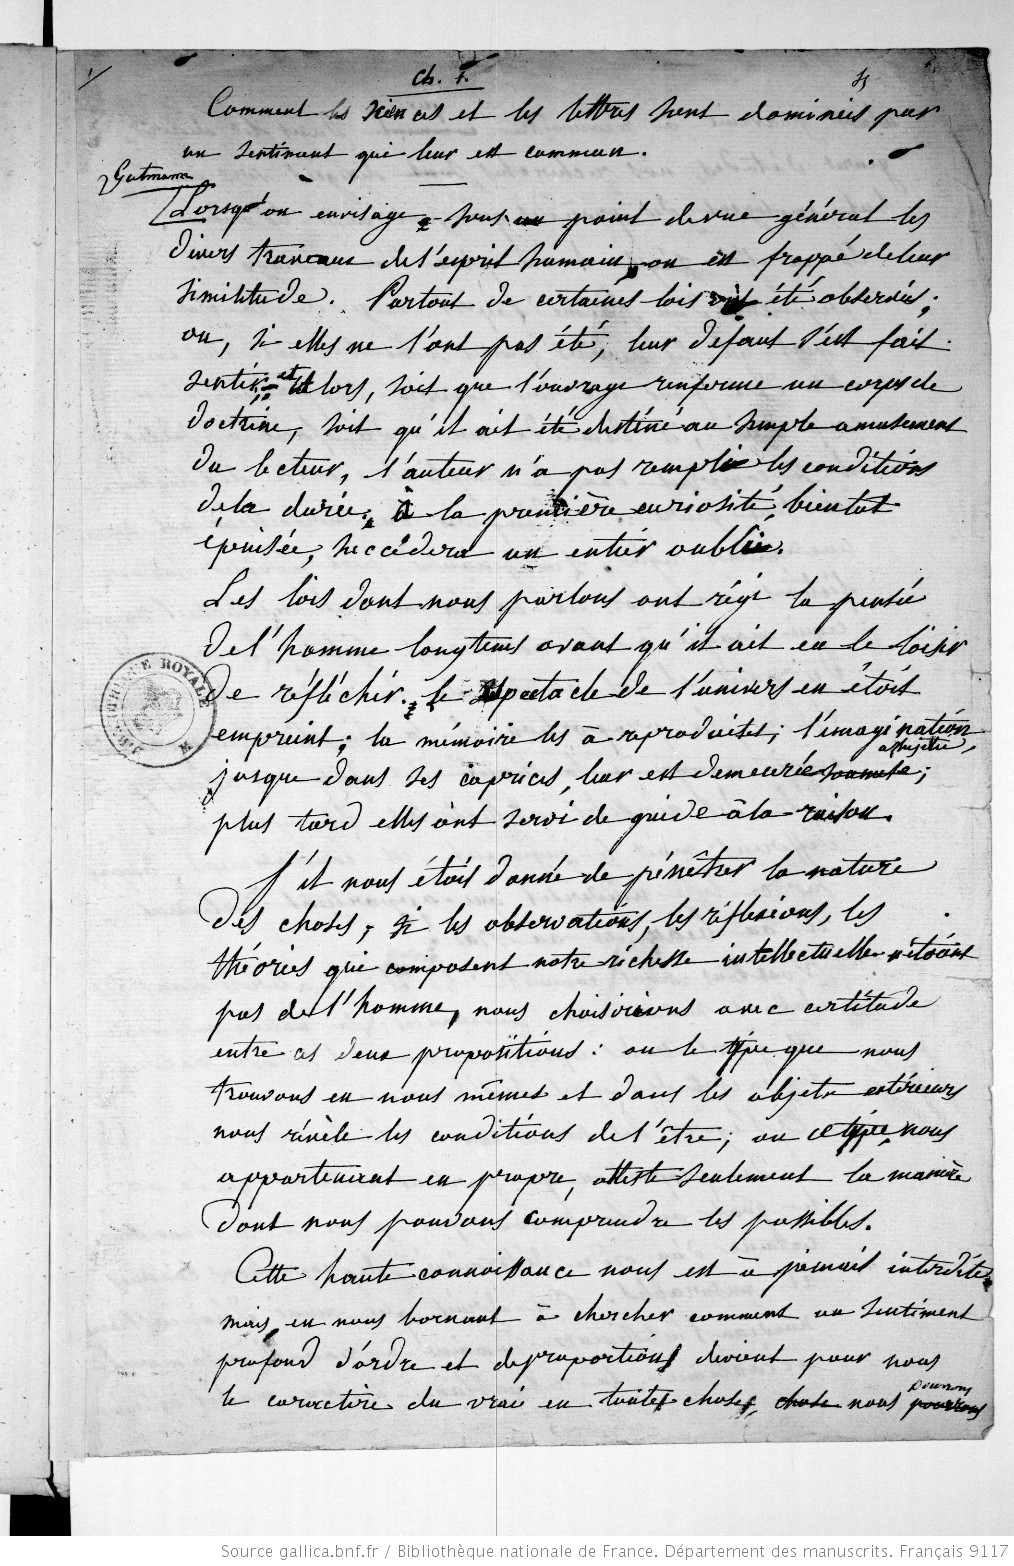 Ch. 1.
Comment les sciences et les lettres sont dominées par
un sentiment qui leur est commun.
Gutmann
Lorsqu'on envisage, sous un point de vue général les
divers travaux de l'esprit humain, on est frappé de leur
similitude. Partout de certaines lois ont été observées;
ou, si elles ne l'ont pas été, leur défaut s'est fait
sentir; et alors, soit que l'ouvrage renferme un corps de
doctrine, soit qu'il ait été destiné au simple amusement
du lecteur, l'auteur n'a pas rempli les conditions
de la durée; à la première curiosité, bientot
épuisée, succédera un entier oubli.
Les lois dont nous parlons ont régi la pensée
de l'homme longtems avant qu'il ait eu le loisir
de réfléchir. le spectacle de l'univers en étoit
empreint; la mémoire les a reproduites; l'imagination,
assujettie
jusque dans ses caprices, leur est demeurée soumise;
plus tard elles ont servi de guide à la raison.
S'il nous étoit donné de pénétrer la nature
des choses, si les observations, les réflexions, les
théories qui composent notre richesse intellectuelle n'étoient
pas de l'homme, nous choisirions avec certitude
entre ces deux propositions: ou le type que nous
trouvons en nous mêmes et dans les objets extérieurs
nous révèle les conditions de l'être; ou ce type, nous
appartenant en propre, atteste seulement la manière
dont nous pouvons comprendre les possibles.
Cette haute connoissance nous est à jamais interdite
mais, en nous bornant à chercher comment un sentiment
profond d'ordre et de proportions devient pour nous
pouvons
le caractère du vrai en toutes choses, chose nous pourrons
BIBLIOTHÈQUE ROYALE
Source gallica.bnf.fr / Bibliothèque nationale de France. Département des manuscrits. Français 9117